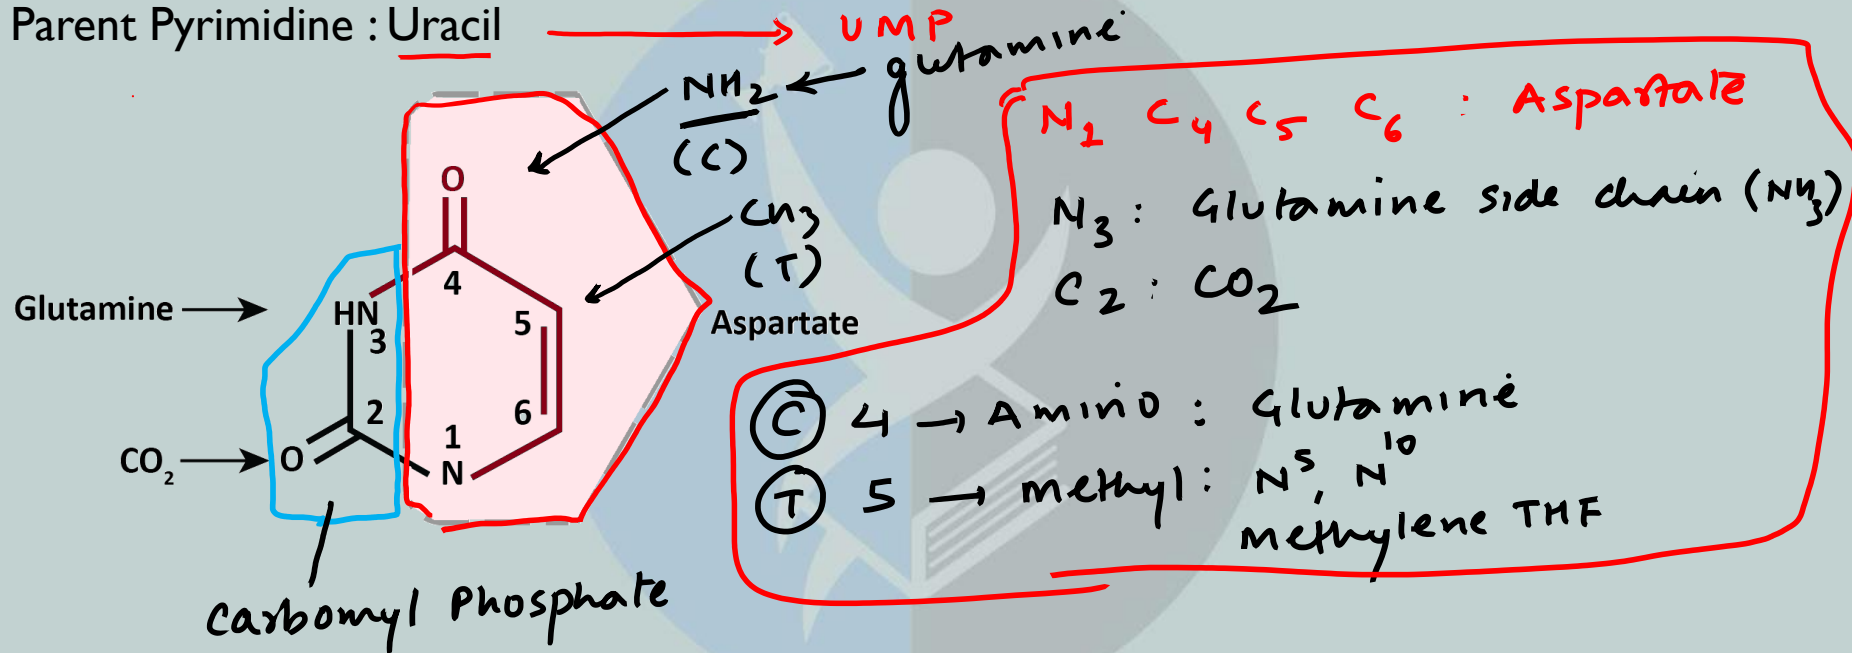 Parent Pyrimidine : Uracil → UMP
NH2 ← glutamine
(C)
CH3
(T)
O
4
HN
3
5
2
6
1
O
N
Glutamine →
CO2 →
Aspartate
Carbomyl Phosphate
N1 C4 C5 C6 : Aspartate
N3 : Glutamine side chain (NH3)
C2 : CO2
C 4 → Amino : Glutamine
T 5 → methyl : N5, N10
methylene THF